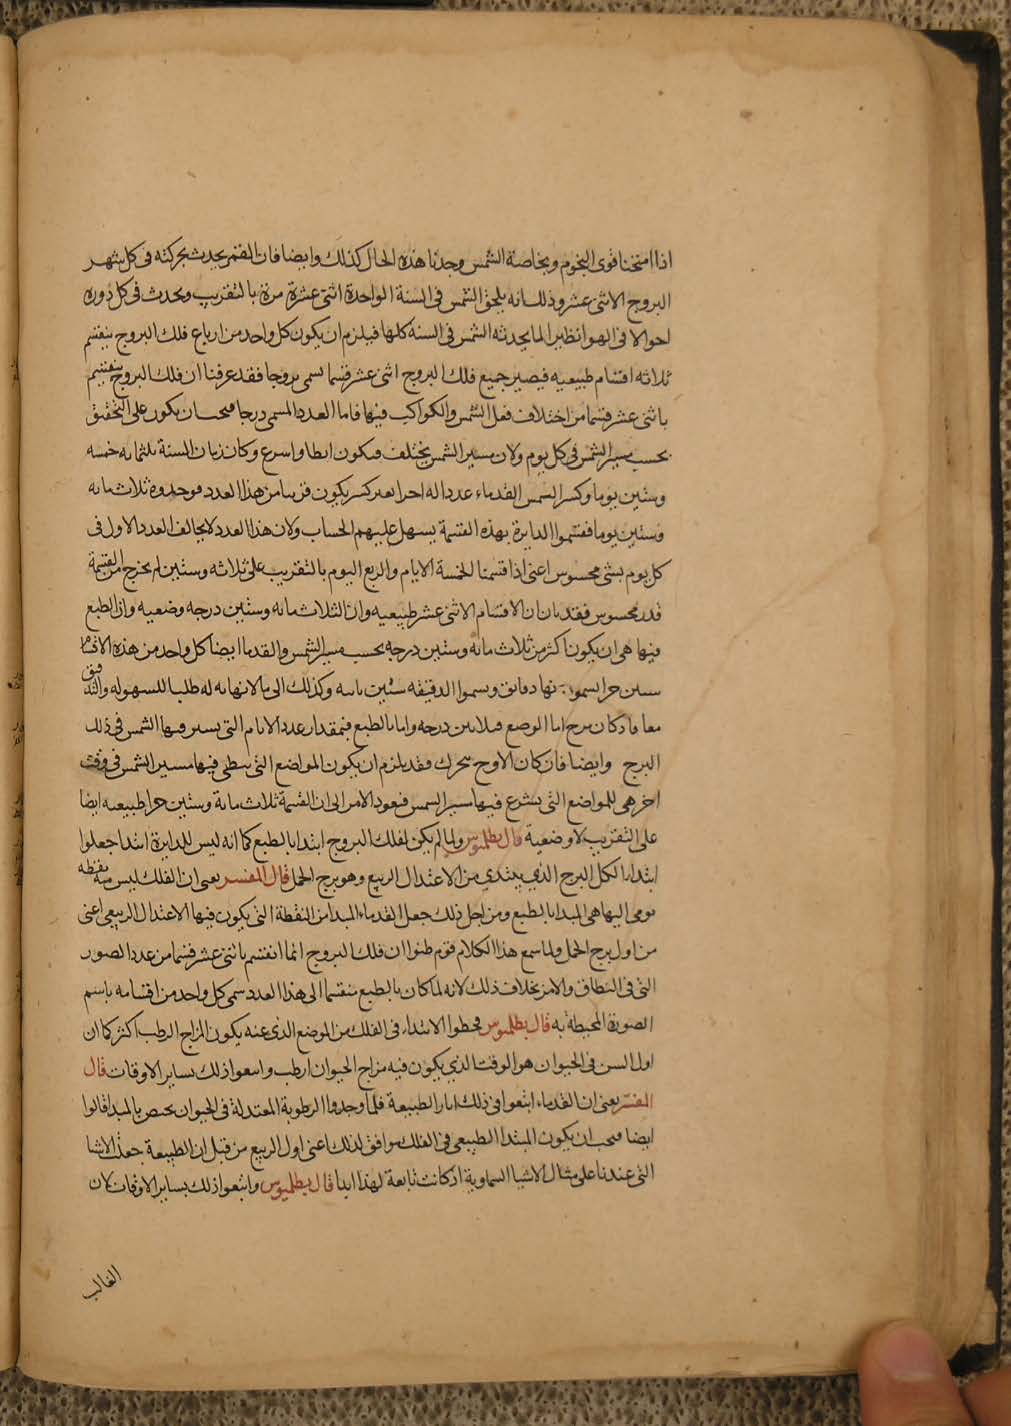 اذا امتحنا قوى النجوم وبخاصة الشمس وجدنا هذه الحال كذلك وايضا فان القمر يحدث بحركته فى كل شهر
البروج الاثنى عشر وذلك انه يلحق الشمس فى السنة الواحدة اثنتى عشرة مرة بالتقريب ويحدث فى كل دوره
احوالا فى الهوا نظير الما يحدثه الشمس فى السنه كلها فيلزم ان يكون كل واحد من ارباع فلك البروج ينقسم
ثلاثه اقسام طبيعيه فيصير جميع فلك البروج اثنى عشر قسما تسمى بروجا فقد عرفنا ان فلك البروج ينقسم
باثنى عشر قسما من اختلاف فعل الشمس والكواكب فيها فاما العدد المسمى درجا فيجب ان يكون على التحقيق
بحسب مسير الشمس فى كل يوم ولان مسير الشمس يختلف فيكون ابطا واسرع وكان زمان السنة ثلثمائه خمسه
وستين يوما وكسرا التمس القدماء عددا له اجزا بغير كسر يكون قريبا من هذا العدد فوجدوه ثلاث مائه
وستين يوما فقسموا الدايرة بهذه القسمة يسهل عليهم الحساب ولان هذا العدد لا يخالف العدد الاول فى
كل يوم بشى محسوس اعنى اذا قسمنا الخمسة الايام والربع اليوم بالتقريب على ثلاثه وستين لم يخرج من القسمة
قدر محسوس فقد بان ان الاقسام الاثنى عشر طبيعيه وان الثلاث مائه وستين درجه وضعيه وان الطبع
فيها هى ان يكون اكثر من ثلاث مائه وستين درجه بحسب مسير الشمس والقدما ايضا كل واحد من هذه الاقسام
ستين جزا يسمونها دقائق وقسموا الدقيقه ستين ثانيه وكذلك الى ما لا نهايه له طلبا للسهوله والتدقيق
معا فاذ كان برج اما الوضع فثلاثين درجه واما بالطبع فبمقدار عدد الايام التى يسير فيها الشمس فى ذلك
البرج وايضا فان كان الاوج يتحرك فقد يلزم ان يكون المواضع التى يبطى فيها مسير الشمس فى وقت
اخر هى للمواضع التى يسرع فيها سير الشمس فيعود الامر الى ان القسمة ثلاث مائة وستين جزا طبيعيه ايضا
على التقريب لا وضعية قال بطلميوس ولما لم يكن لفلك البروج ابتدا بالطبع كما انه ليس للدايرة ابتدا جعلوا
ابتدا الكل البرج الذي يبتدي من الاعتدال الربيع وهو برج الحمل قال المفسر يعنى ان الفلك ليس منه نقطه
نومى اليها هى المبدا بالطبع ومن اجل ذلك جعل القدماء المبدا من النقطة التى يكون فيها الاعتدال الربيعى اعنى
من اول برج الحمل ولما سمع هذا الكلام قوم ظنوا ان فلك البروج انما انقسم باثنى عشر قسما من عدد الصور
التى فى النطاق والامر بخلاف ذلك لانه لما كان بالطبع منقسما الى هذا العدد سمى كل واحد من اقسامه باسم
الصورة المحيطة به قال بطلميوس فجعلوا الابتداء فى الفلك من الموضع الذى عنه يكون المزاج الرطب اكثر كما ان
اول السن فى الحيوان هو الوقت الذي يكون فيه مزاج الحيوان ارطب واتبعوا ذلك بساير الاوقات قال
المفسر يعنى ان القدماء اتبعوا فى ذلك اثار الطبيعة فلما وجدوا الرطوبة المعتدلة فى الحيوان يختص بالمبدا قالوا
ايضا فيجب ان يكون المبتدا الطبيعى فى الفلك موافق لذلك اعنى اول الربيع من قبل ان الطبيعة جعلت الاشيا
التى عندنا على مثال الاشيا السماوية اذ كانت تابعة لهذا ابدا قال بطلميوس واتبعوا ذلك بساير الاوقات لان
الغالب